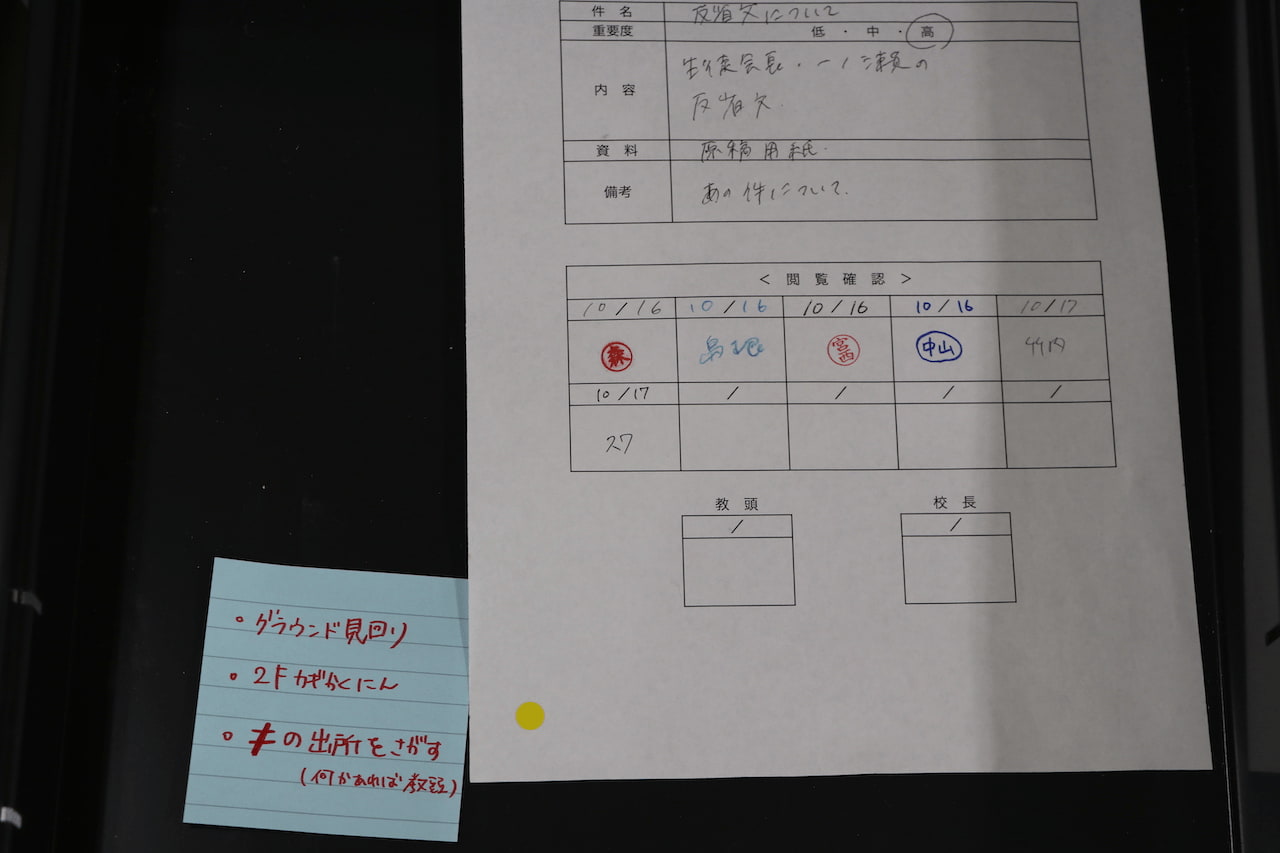 件名 反省文について
重要度 低・中・高
内容 生徒会長・一ノ瀬の
反省文.
資料 原稿用紙.
備考 あの件について.
＜閲覧確認＞
10/16 10/16 10/16 10/16 10/17
森 島根 宮西 中山 竹内
10/17 / / / /
スワ
教頭 校長
/ /
・グラウンド見回り
・2Fカギかくにん
・≠の出所をさがす
(何かあれば教頭)